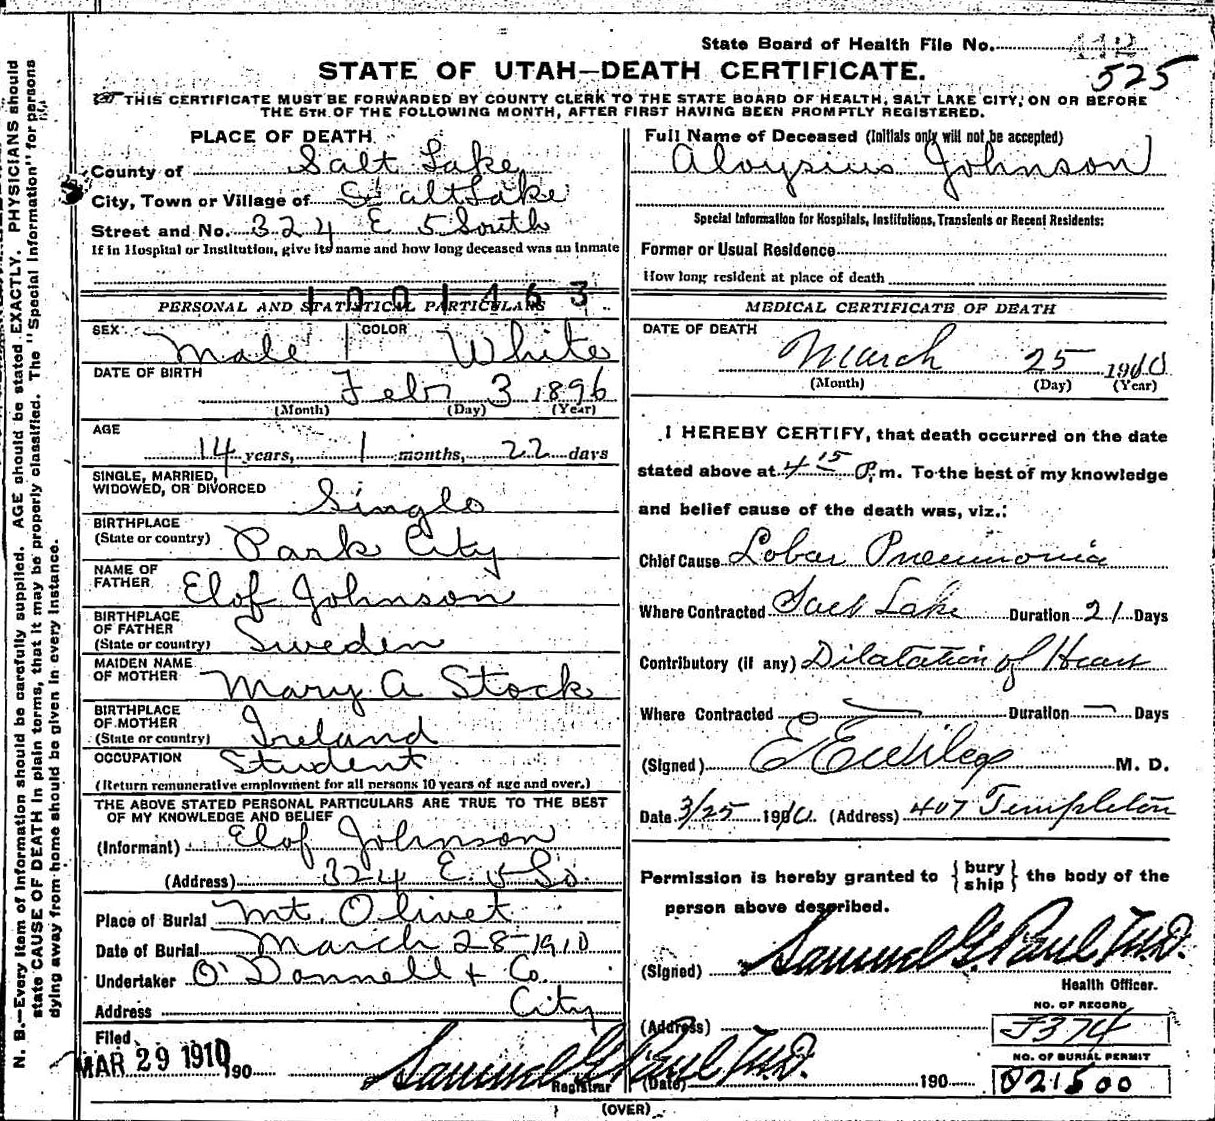 State Board of Health File No. 112
525
STATE OF UTAH—DEATH CERTIFICATE.
THIS CERTIFICATE MUST BE FORWARDED BY COUNTY CLERK TO THE STATE BOARD OF HEALTH, SALT LAKE CITY, ON OR BEFORE
THE 5TH OF THE FOLLOWING MONTH, AFTER FIRST HAVING BEEN PROMPTLY REGISTERED.
N. B.—Every item of information should be carefully supplied. AGE should be stated EXACTLY. PHYSICIANS should
state CAUSE OF DEATH in plain terms, that it may be properly classified. The "Special Information" for persons
dying away from home should be given in every instance.
PLACE OF DEATH
County of Salt Lake
City, Town or Village of Salt Lake
Street and No. 324 E 5 South
If in Hospital or Institution, give its name and how long deceased was an inmate
1001463
PERSONAL AND STATISTICAL PARTICULARS
SEX Male COLOR White
DATE OF BIRTH
Feb 3 1896
(Month) (Day) (Year)
AGE
14 years, 1 months, 22 days
SINGLE, MARRIED,
WIDOWED, OR DIVORCED Single
BIRTHPLACE
(State or country) Park City
NAME OF
FATHER Elof Johnson
BIRTHPLACE
OF FATHER
(State or country) Sweden
MAIDEN NAME
OF MOTHER Mary A Stock
BIRTHPLACE
OF MOTHER
(State or country) Ireland
OCCUPATION Student
(Return remunerative employment for all persons 10 years of age and over.)
THE ABOVE STATED PERSONAL PARTICULARS ARE TRUE TO THE BEST
OF MY KNOWLEDGE AND BELIEF
(Informant) Elof Johnson
(Address) 324 E 5 So.
Place of Burial Mt. Olivet
Date of Burial March 28 1910
Undertaker O'Donnell & Co.
Address City
Filed
MAR 29 1910 190 Samuel G. Paul M.D.
Registrar
Full Name of Deceased (Initials only will not be accepted)
Aloysius Johnson
Special Information for Hospitals, Institutions, Transients or Recent Residents:
Former or Usual Residence
How long resident at place of death
MEDICAL CERTIFICATE OF DEATH
DATE OF DEATH
March 25 1910
(Month) (Day) (Year)
I HEREBY CERTIFY, that death occurred on the date
stated above at 4 15 P. m. To the best of my knowledge
and belief cause of the death was, viz.:
Chief Cause Lobar Pneumonia
Where Contracted Salt Lake Duration 21 Days
Contributory (if any) Dilatation of Heart
Where Contracted Duration — Days
(Signed) M. D.
Date 3/25 1910. (Address) 407 Templeton
Permission is hereby granted to { bury ship } the body of the
person above described.
(Signed) Samuel G. Paul M.D.
Health Officer.
(Address)
NO. OF RECORD
J374
NO. OF BURIAL PERMIT
(Date) 190 021500
(OVER)